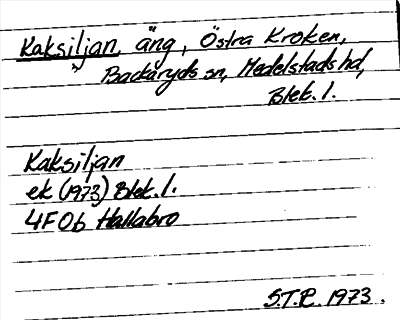 Kaksiljan, äng, Östra Kroken,
Backaryds sn, Medelstads hd,
Blek. l.
Kaksiljan
ek (1973) Blek. l.
4F 0b Hallabro
S.T.P. 1973.